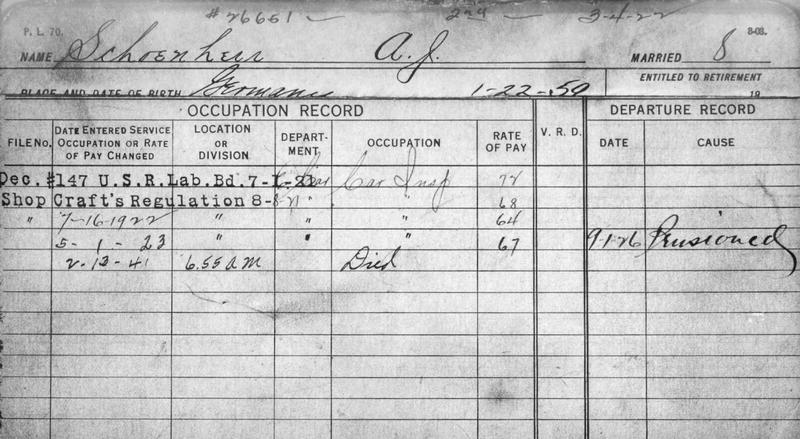 #26651 - 229 - 3-4-22
P. L. 70. 8-03.
NAME Schoenherr A. J. MARRIED 8
PLACE AND DATE OF BIRTH Germany 1-22-59 ENTITLED TO RETIREMENT 19
OCCUPATION RECORD DEPARTURE RECORD
FILE NO. DATE ENTERED SERVICE OCCUPATION OR RATE OF PAY CHANGED LOCATION OR DIVISION DEPARTMENT OCCUPATION RATE OF PAY V. R. D. DATE CAUSE
Dec. #147 U.S.R.Lab.Bd. 7-1- Car Insp 72
Shop Craft's Regulation 8- " " 68
" 7-16-1922 " " " 64
5-1-23 " " " 67 9-1-26 Pensioned
2-13-41 6.55 AM Died